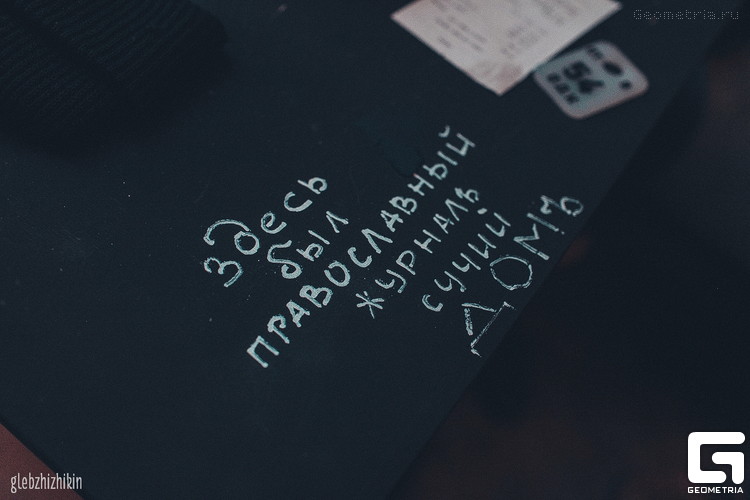 Geometria.ru
54
Здесь
был
ПРАВОСЛАВНЫЙ
ЖУРНАЛЪ
СУЧИЙ
ДОМЪ
glebzhizhikin
GEOMETRIA